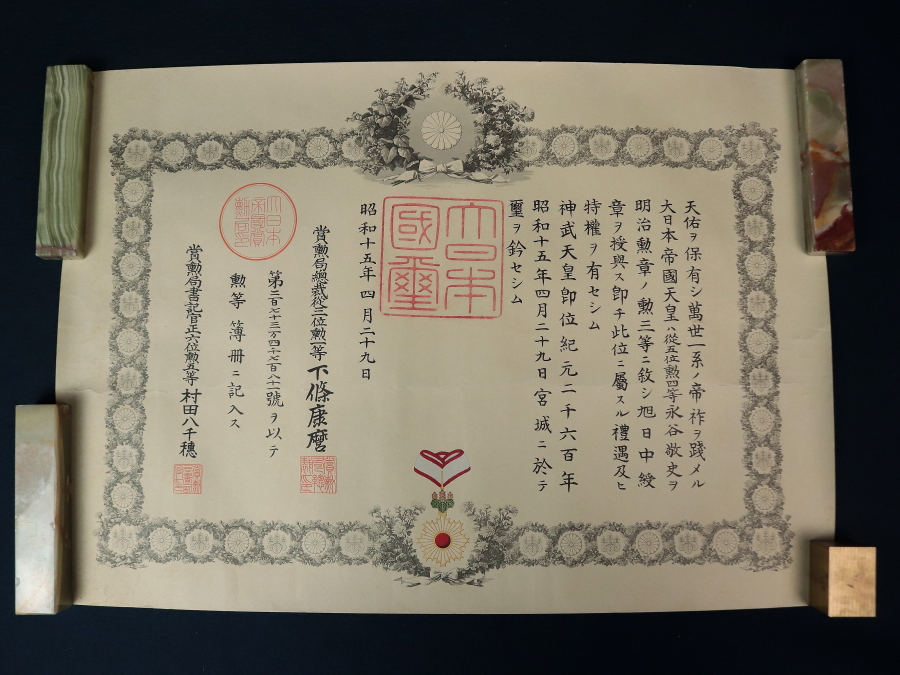 天佑ヲ保有シ萬世一系ノ帝祚ヲ踐メル
大日本帝國天皇ハ從五位勲四等永谷敬史ヲ
明治勲章ノ勲三等ニ敘シ旭日中綬
章ヲ授與ス即チ此位ニ屬スル禮遇及ヒ
特權ヲ有セシム
神武天皇卽位紀元二千六百年
昭和十五年四月二十九日宮城ニ於テ
璽ヲ鈐セシム
大日本
國璽
昭和十五年四月二十九日
賞勲局總裁從三位勲一等下條康麿
第二百七十三万四千七百八十一號ヲ以テ
勲等簿冊ニ記入ス
賞勲局書記官正六位勲五等村田八千穗